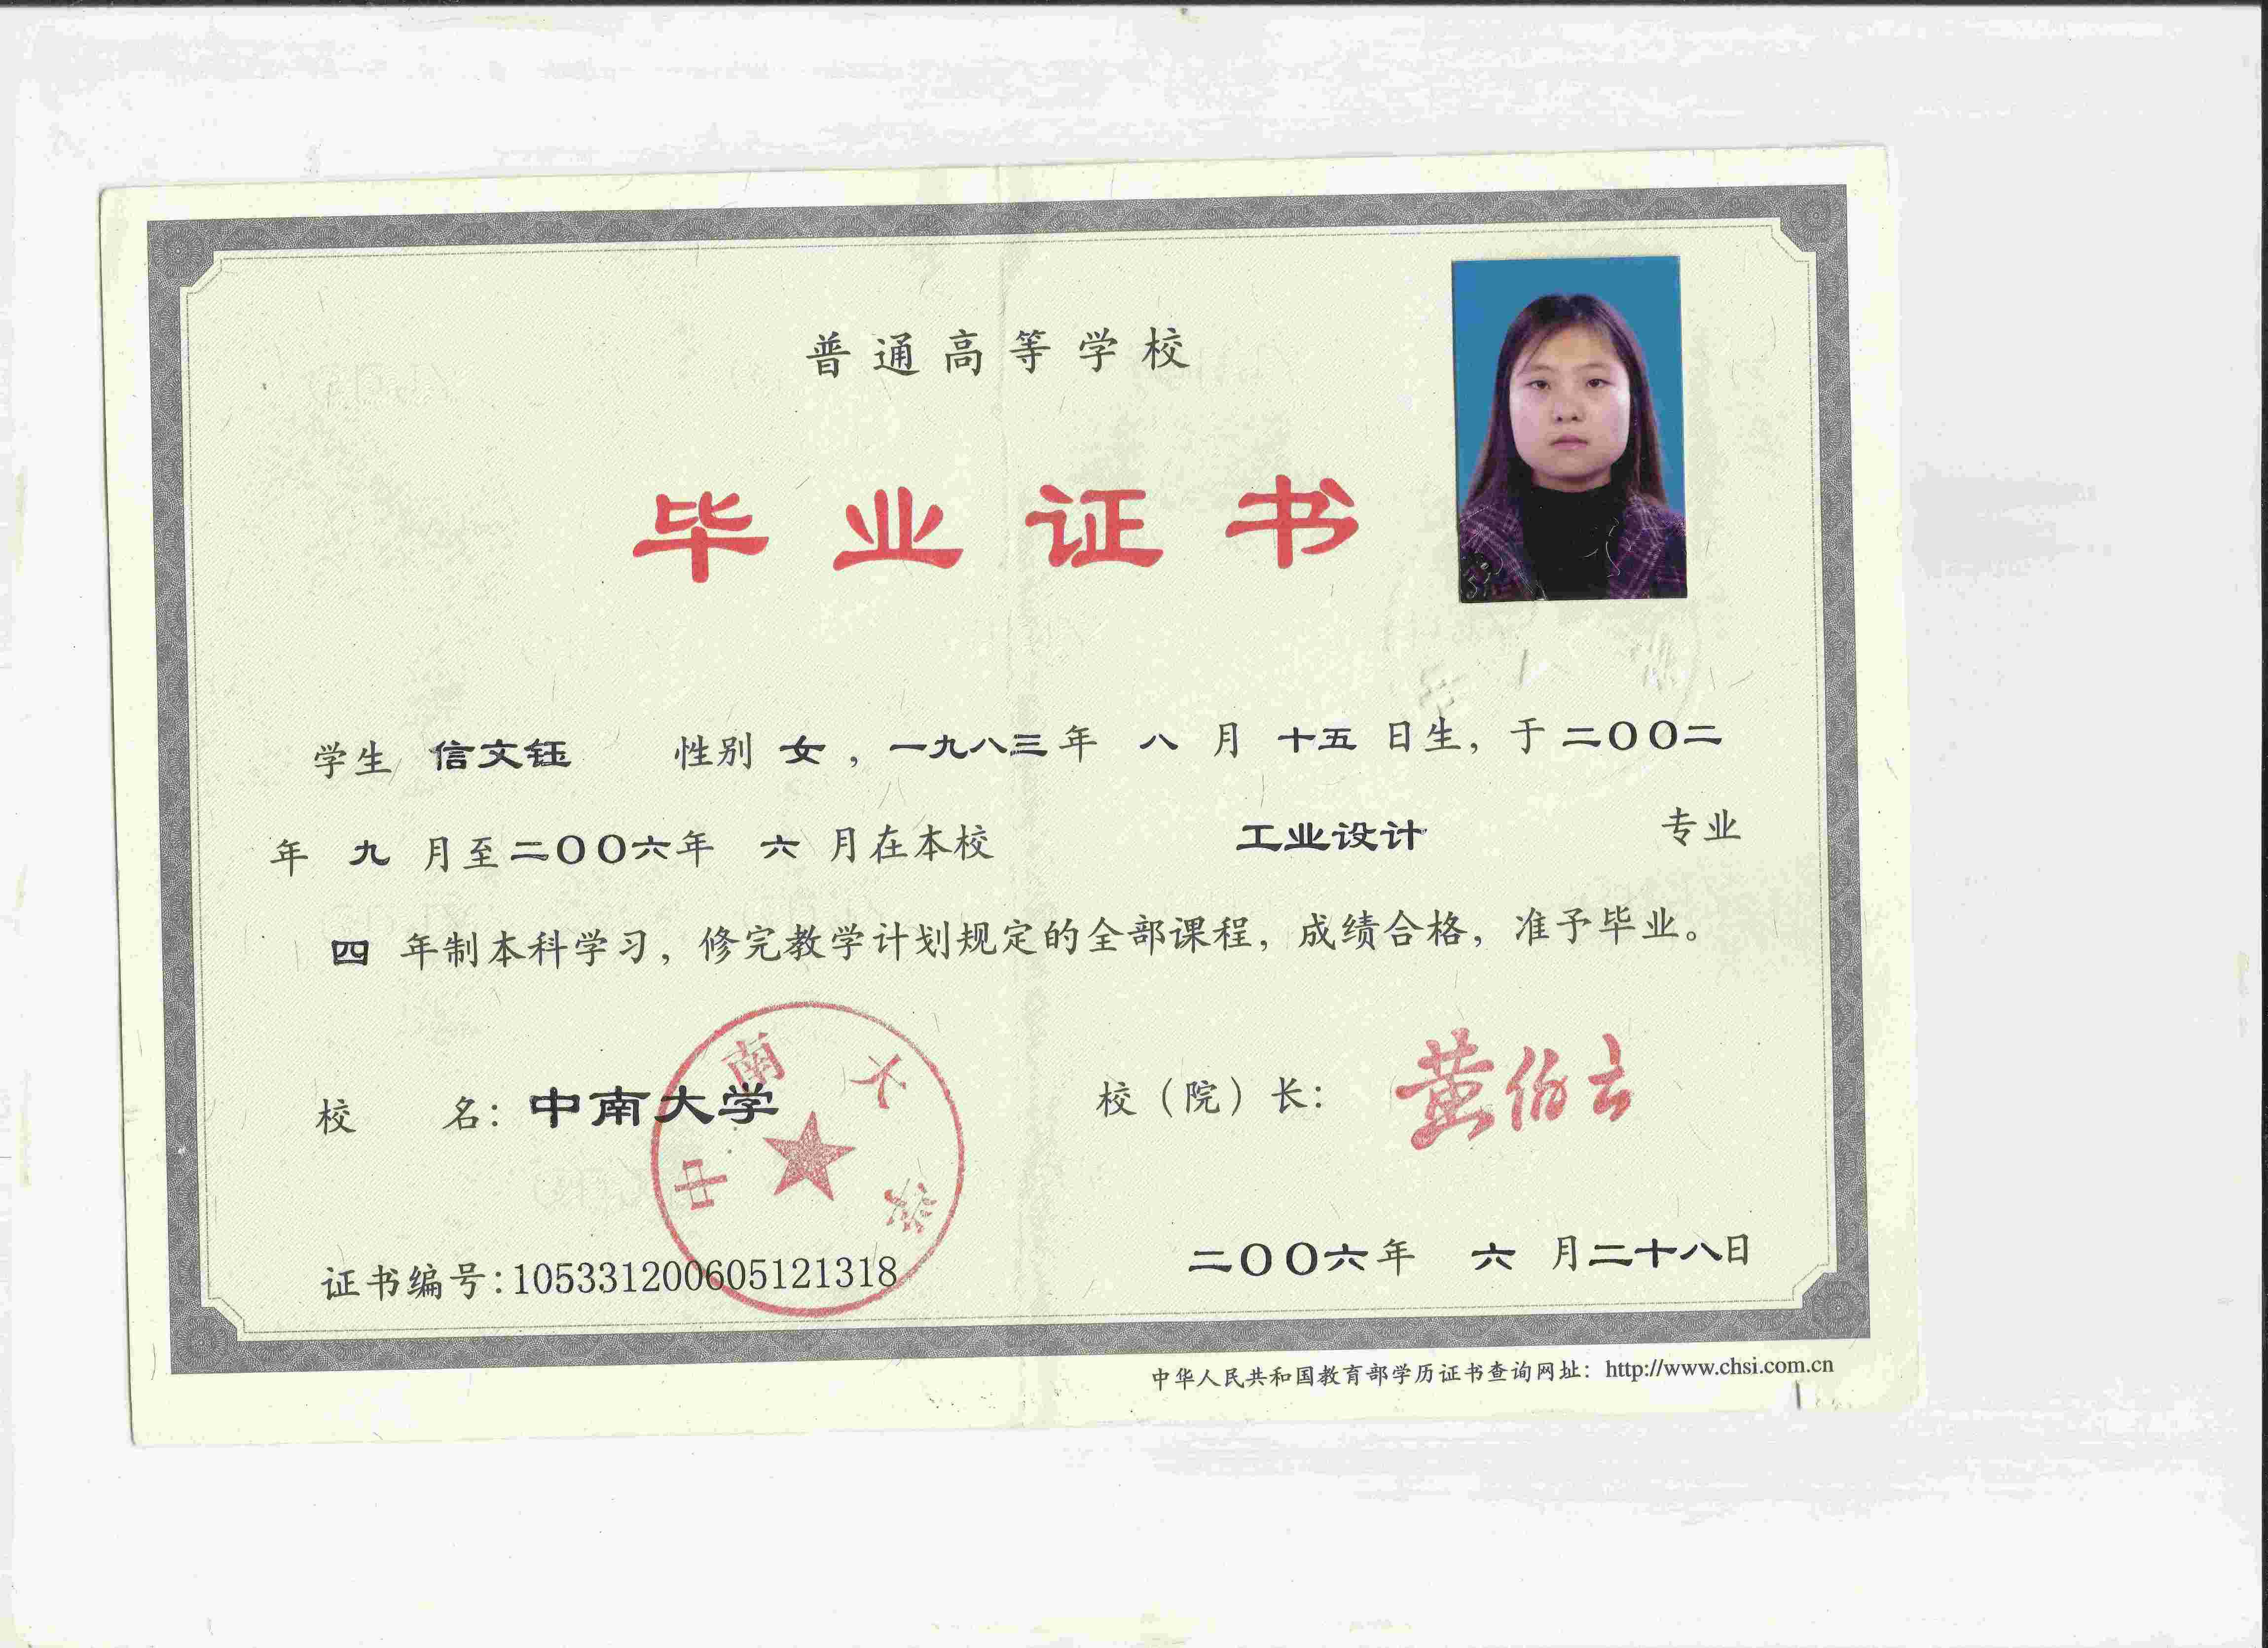 普通高等学校
毕业证书
学生 信文钰 性别 女 ，一九八三年 八 月 十五 日生，于 二〇〇二
年 九 月至二〇〇六年 六 月在本校 工业设计 专业
四 年制本科学习，修完教学计划规定的全部课程，成绩合格，准予毕业。
校 名：中南大学
校（院）长：黄伯云
中南大学
证书编号：105331200605121318
二〇〇六年 六 月二十八日
中华人民共和国教育部学历证书查询网址：http://www.chsi.com.cn